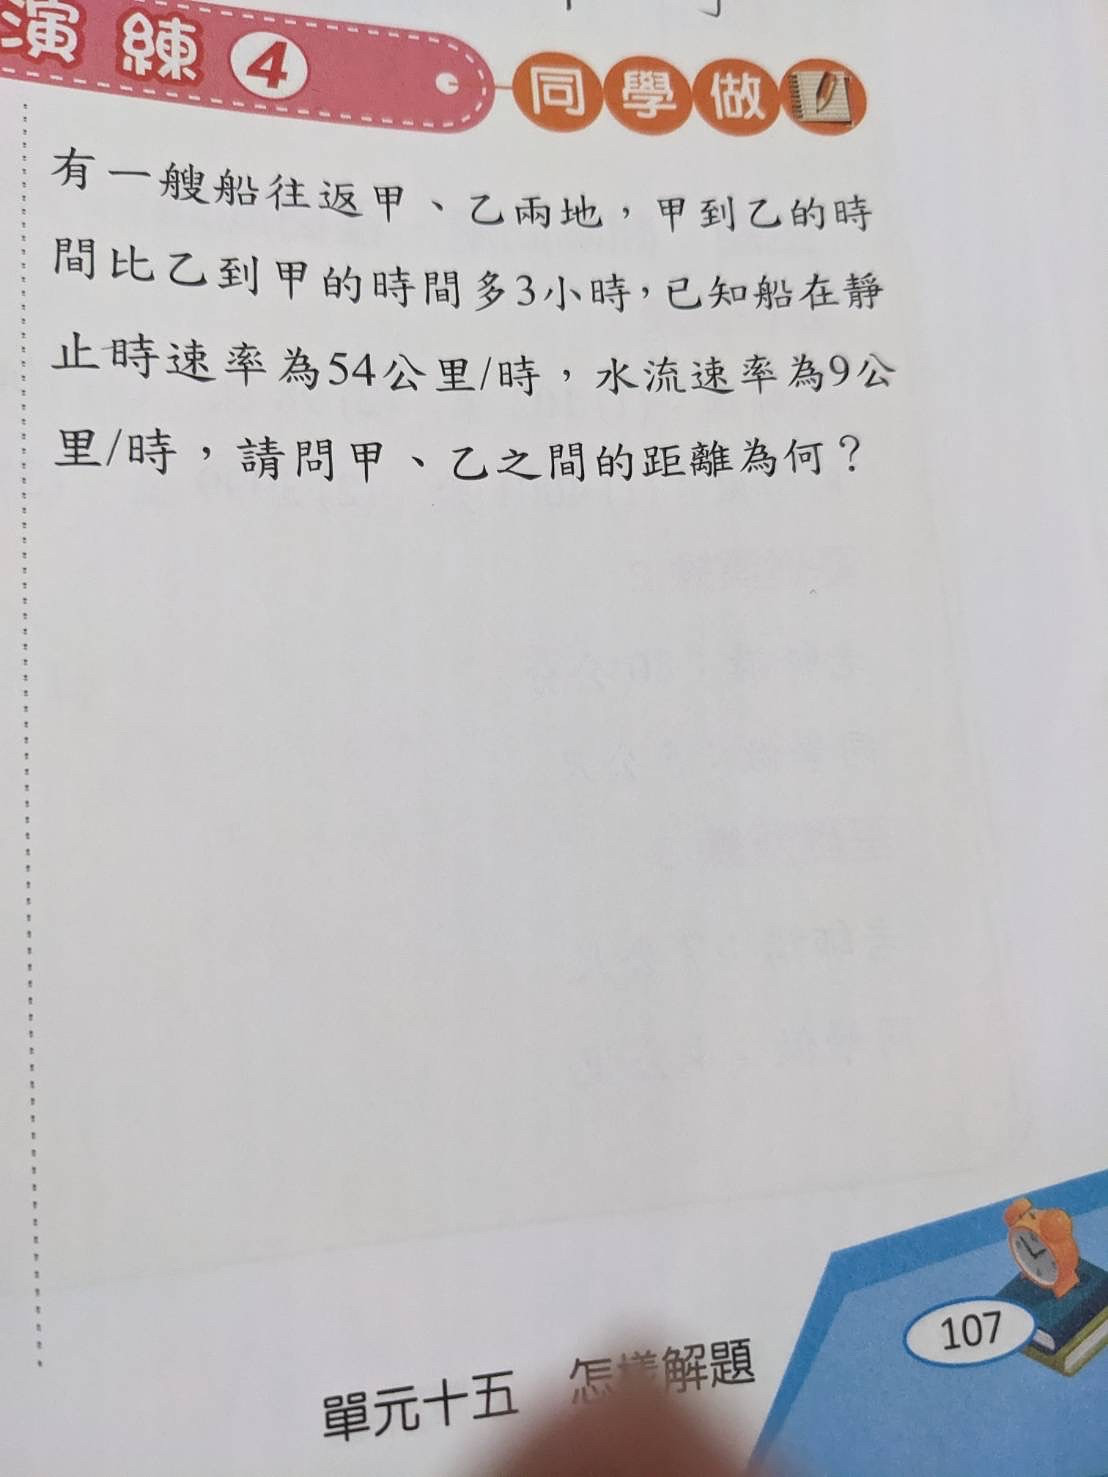 演練4 同學做
有一艘船往返甲、乙兩地，甲到乙的時
間比乙到甲的時間多3小時，已知船在靜
止時速率為54公里/時，水流速率為9公
里/時，請問甲、乙之間的距離為何？
107
單元十五 怎樣解題